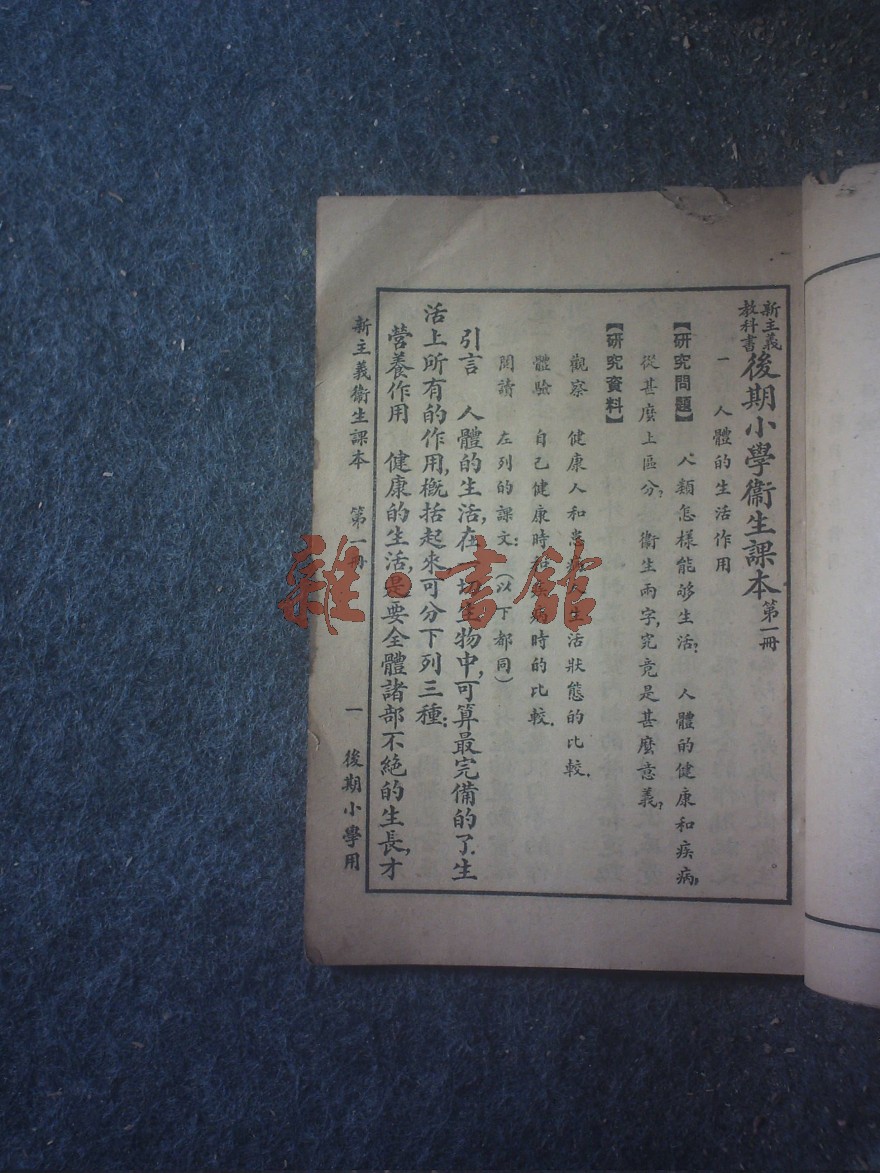 新主義教科書 後期小學衞生課本 第一冊
一 人體的生活作用
【研究問題】 人類怎樣能够生活? 人體的健康和疾病,
從甚麼上區分? 衞生兩字,究竟是甚麼意義?
【研究資料】
觀察 健康人和患病人生活狀態的比較.
體驗 自己健康時和疾病時的比較.
閱讀 左列的課文:(以下都同)
引言 人體的生活,在一切生物中,可算最完備的了.生
活上所有的作用,概括起來可分下列三種:
營養作用 健康的生活,是要全體諸部不絕的生長,才
新主義衞生課本 第一冊 一 後期小學用
雜·書館